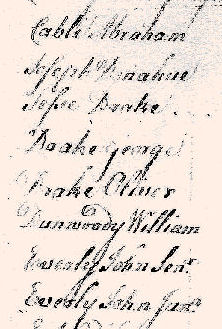 Cable Abraham
Joseph Braahue
Jesse Drake
Drake George
Drake Oliver
Dunwoody William
Everly John Senr
Everly John Junr